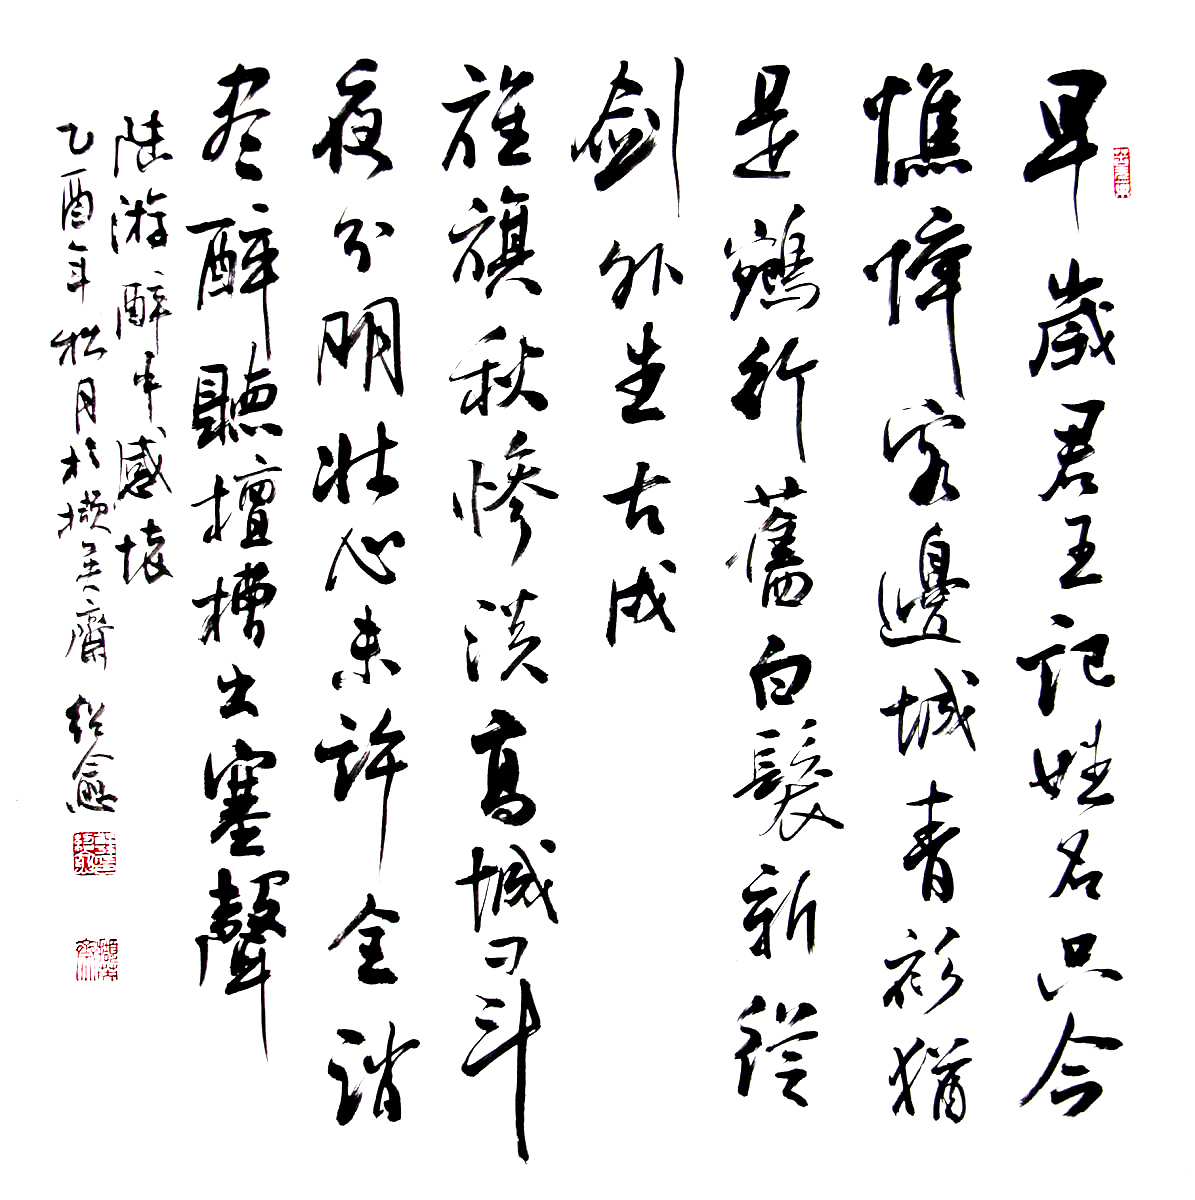 早歲君王記姓名只今
憔悴客邊城青衫猶
是鵷行舊白髮新從
剑外生古戍
旌旗秋惨淡高城刁斗
夜分明壮心未許全消
尽醉聽檀槽出塞聲
陆游醉中感懷
乙酉年 松月於撷英齋